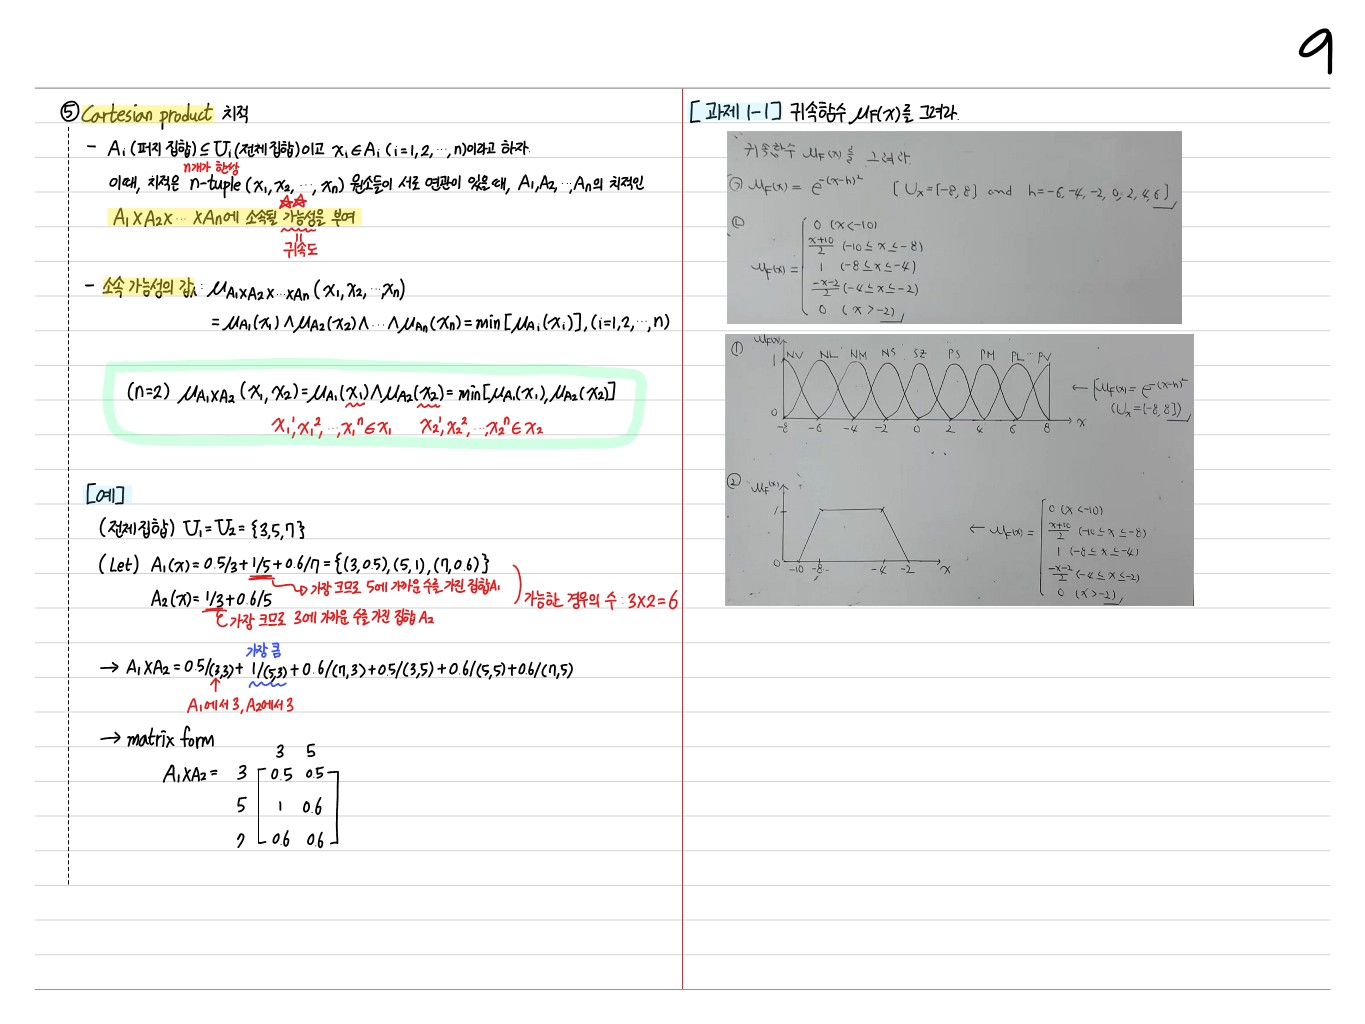 9
⑤ Cartesian product 치적
- Ai (퍼지 집합) ⊆ Ui (전체 집합)이고 xi ∈ Ai (i=1,2,…,n)이라고 하자.
n개가 한쌍
이때, 치적은 n-tuple (x1, x2, …, xn) 원소들이 서로 연관이 있을 때, A1, A2, …, An의 치적인
☆☆
A1 X A2 X … X An에 소속될 가능성을 부여
=
귀속도
- 소속 가능성의 값: μA1XA2X…XAn (x1, x2, …, xn)
= μA1(x1) ∧ μA2(x2) ∧ … ∧ μAn(xn) = min[μAi(xi)], (i=1,2,…,n)
(n=2) μA1XA2 (x1, x2) = μA1(x1) ∧ μA2(x2) = min[μA1(x1), μA2(x2)]
x1¹, x1², …, x1ⁿ ∈ x1 x2¹, x2², …, x2ⁿ ∈ x2
[예]
(전체 집합) U1 = U2 = {3,5,7}
(Let) A1(x) = 0.5/3 + 1/5 + 0.6/7 = {(3,0.5), (5,1), (7,0.6)}
→ 가장 크므로 5에 가까운 수를 가진 집합 A1
A2(x) = 1/3 + 0.6/5
가장 크므로 3에 가까운 수를 가진 집합 A2
가능한 경우의 수 : 3X2=6
가장 큼
→ A1XA2 = 0.5/(3,3) + 1/(5,3) + 0.6/(7,3) + 0.5/(3,5) + 0.6/(5,5) + 0.6/(7,5)
↑
A1에서 3, A2에서 3
→ matrix form
3 5
A1XA2 = 3 [0.5 0.5]
5 1 0.6
7 0.6 0.6
[과제 1-1] 귀속함수 μF(x)를 그려라.
귀속함수 μF(x)를 그려라
μF(x) = e^-(x-h)² [Ux = [-8, 8] and h = -6, -4, -2, 0, 2, 4, 6]
②
0 (x < -10)
x+10/2 (-10 ≤ x ≤ -8)
μF(x) = 1 (-8 ≤ x ≤ -4)
-x-2/2 (-4 ≤ x ≤ -2)
0 (x > -2)
① μF(x)
NV NL NM NS SZ PS PM PL PV
1
0
-8 -6 -4 -2 0 2 4 6 8 x
← [μF(x) = e^-(x-h)²
(Ux = [-8, 8])
② μF(x)
1
0
-10 -8 -4 -2 x
← μF(x) =
0 (x < -10)
x+10/2 (-10 ≤ x ≤ -8)
1 (-8 ≤ x ≤ -4)
-x-2/2 (-4 ≤ x ≤ -2)
0 (x > -2)